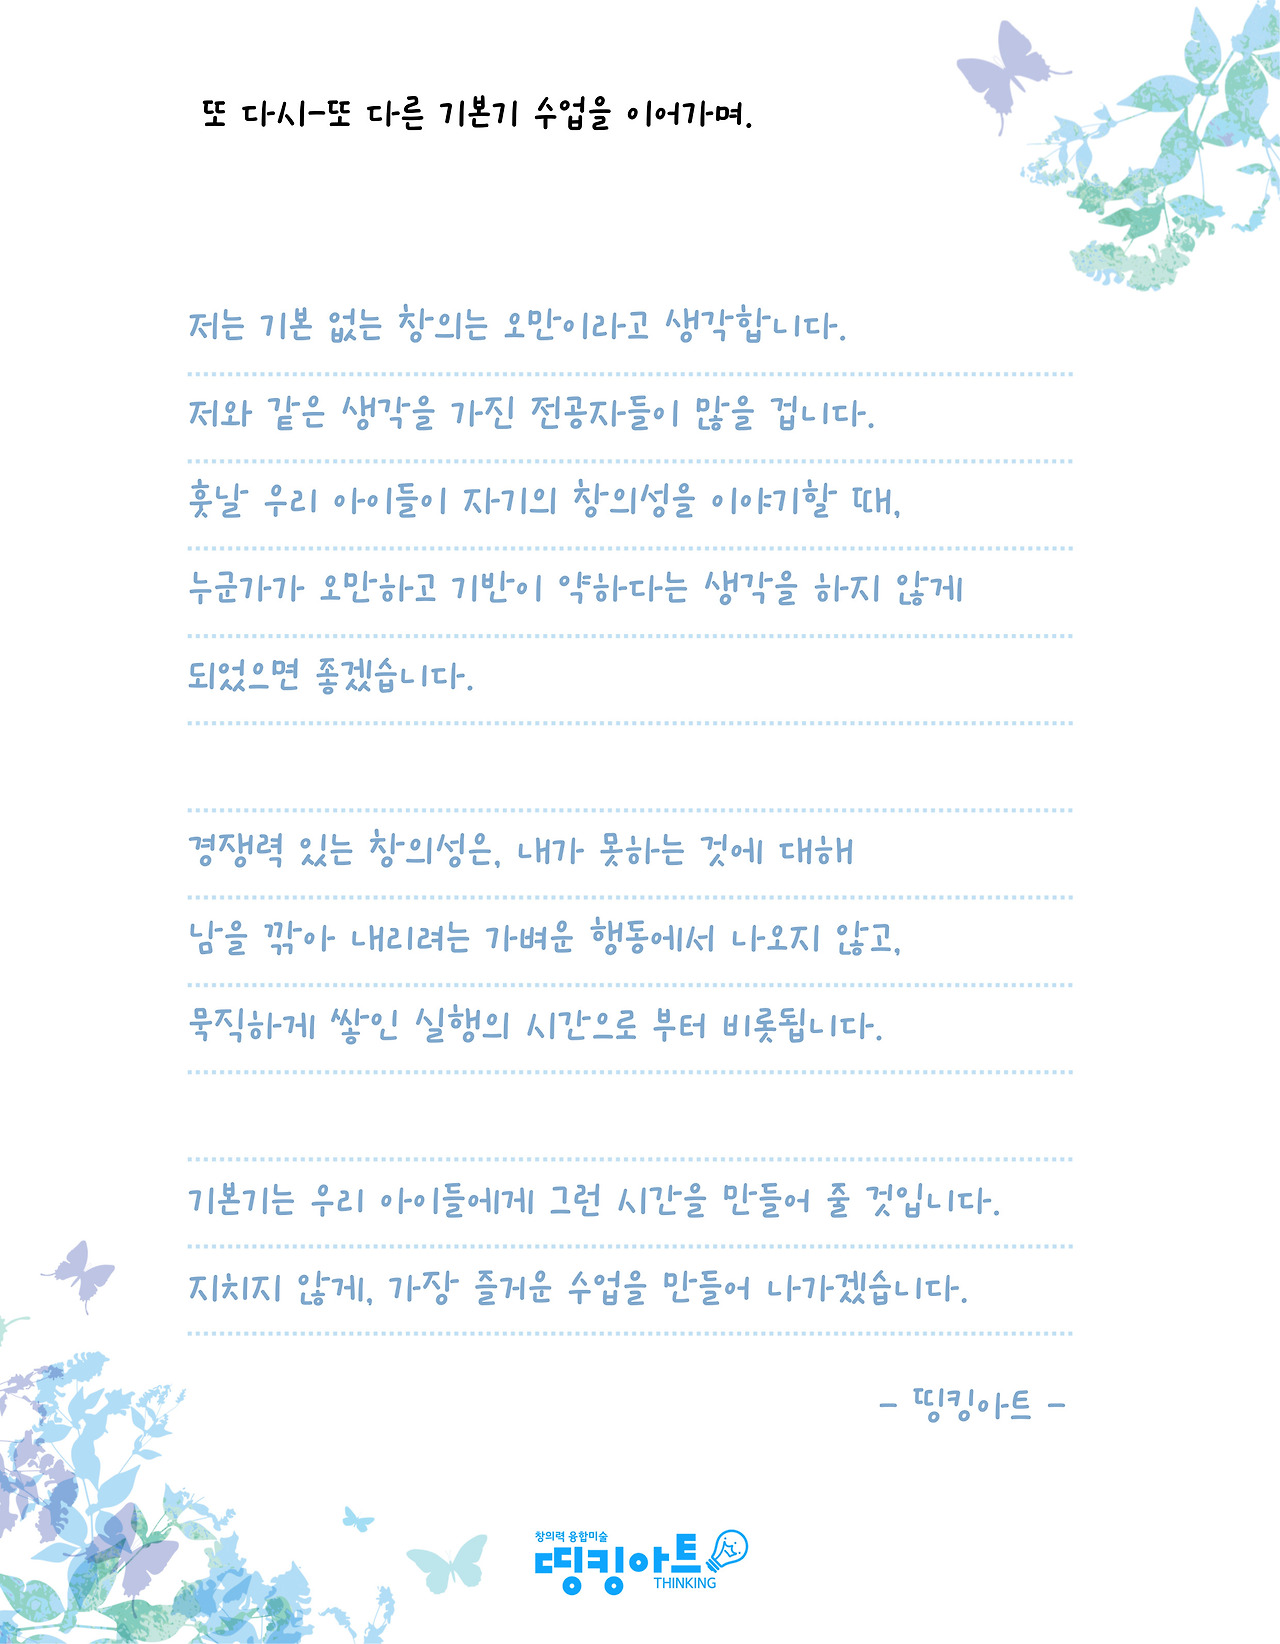 또 다시-또 다른 기본기 수업을 이어가며.
저는 기본 없는 창의는 오만이라고 생각합니다.
저와 같은 생각을 가진 전공자들이 많을 겁니다.
훗날 우리 아이들이 자기의 창의성을 이야기할 때,
누군가가 오만하고 기반이 약하다는 생각을 하지 않게
되었으면 좋겠습니다.
경쟁력 있는 창의성은, 내가 못하는 것에 대해
남을 깎아 내리려는 가벼운 행동에서 나오지 않고,
묵직하게 쌓인 실행의 시간으로 부터 비롯됩니다.
기본기는 우리 아이들에게 그런 시간을 만들어 줄 것입니다.
지치지 않게, 가장 즐거운 수업을 만들어 나가겠습니다.
- 띵킹아트 -
창의력 융합미술
띵킹아트
THINKING